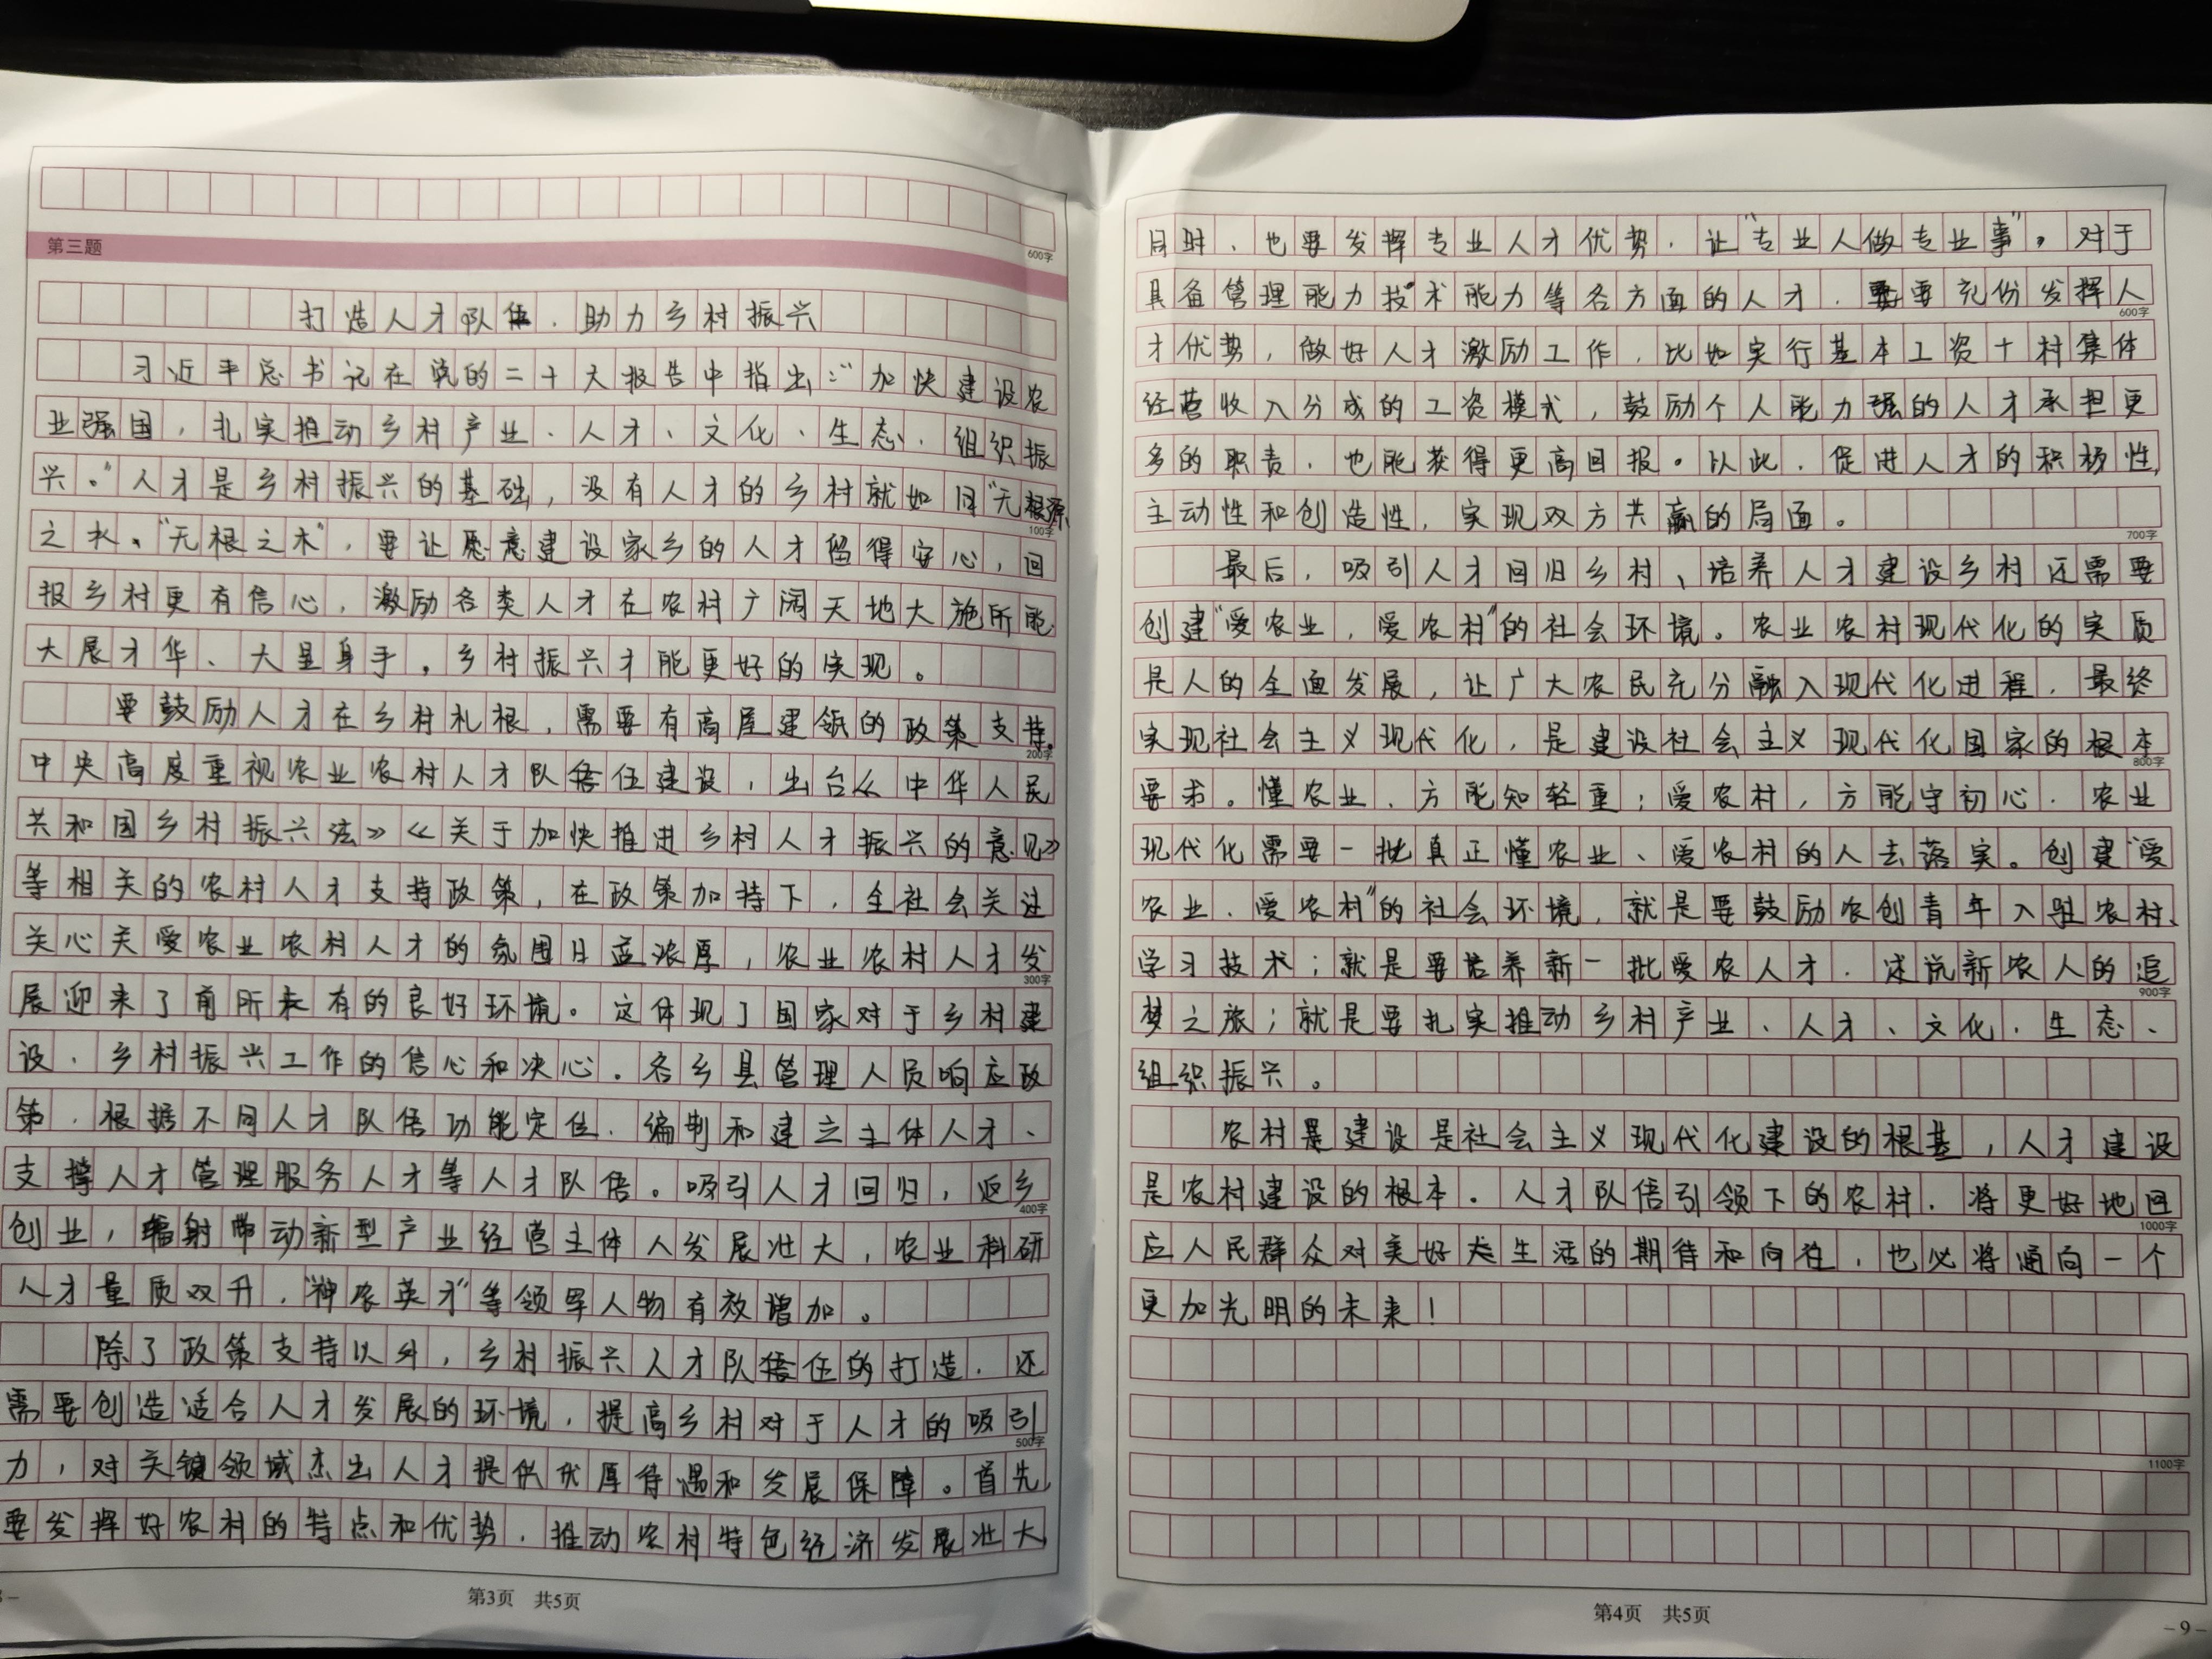 600字
第三题
打造人才队伍，助力乡村振兴
习近平总书记在党的二十大报告中指出："加快建设农
业强国，扎实推动乡村产业、人才、文化、生态、组织振
兴。"人才是乡村振兴的基础，没有人才的乡村就如同"无源
100字
之水、"无根之木"，要让愿意建设家乡的人才留得安心，回
报乡村更有信心，激励各类人才在农村广阔天地大施所能
大展才华、大显身手，乡村振兴才能更好的实现。
要鼓励人才在乡村札根，需要有高屋建瓴的政策支持。
200字
中央高度重视农业农村人才队伍建设，出台《中华人民
共和国乡村振兴法》《关于加快推进乡村人才振兴的意见》
等相关的农村人才支持政策，在政策加持下，全社会关注
关心关爱农业农村人才的氛围日益浓厚，农业农村人才发
300字
展迎来了前所未有的良好环境。这体现了国家对于乡村建
设、乡村振兴工作的信心和决心。各乡县管理人员响应政
策，根据不同人才队伍功能定位，编制和建立主体人才、
支撑人才管理服务人才等人才队伍。吸引人才回归，返乡
400字
创业，辐射带动新型产业经营主体人发展壮大，农业科研
人才量质双升，"神农英才"等领军人物有效增加。
除了政策支持以外，乡村振兴人才队伍的打造，还
需要创造适合人才发展的环境，提高乡村对于人才的吸引
500字
力，对关键领域杰出人才提供优厚待遇和发展保障。首先，
要发挥好农村的特点和优势，推动农村特色经济发展壮大，
第3页 共5页
同时，也要发挥专业人才优势，让"专业人做专业事"。对于
具备管理能力技术能力等各方面的人才，要充份发挥人
600字
才优势，做好人才激励工作，比如实行基本工资+村集体
经营收入分成的工资模式，鼓励个人能力强的人才承担更
多的职责，也能获得更高回报。以此，促进人才的积极性，
主动性和创造性，实现双方共赢的局面。
700字
最后，吸引人才回归乡村、培养人才建设乡村还需要
创建"爱农业，爱农村"的社会环境。农业农村现代化的实质
是人的全面发展，让广大农民充分融入现代化进程，最终
实现社会主义现代化，是建设社会主义现代化国家的根本
800字
要求。懂农业、方能知轻重；爱农村，方能守初心．农业
现代化需要一批真正懂农业、爱农村的人去落实。创建"爱
农业、爱农村"的社会环境，就是要鼓励农创青年入驻农村、
学习技术；就是要培养新一批爱农人才．述说新农人的追
900字
梦之旅；就是要扎实推动乡村产业、人才、文化、生态、
组织振兴。
农村是建设是社会主义现代化建设的根基，人才建设
是农村建设的根本．人才队伍引领下的农村，将更好地回
1000字
应人民群众对美好生活的期待和向往，也必将通向一个
更加光明的未来！
1100字
第4页 共5页
-9-